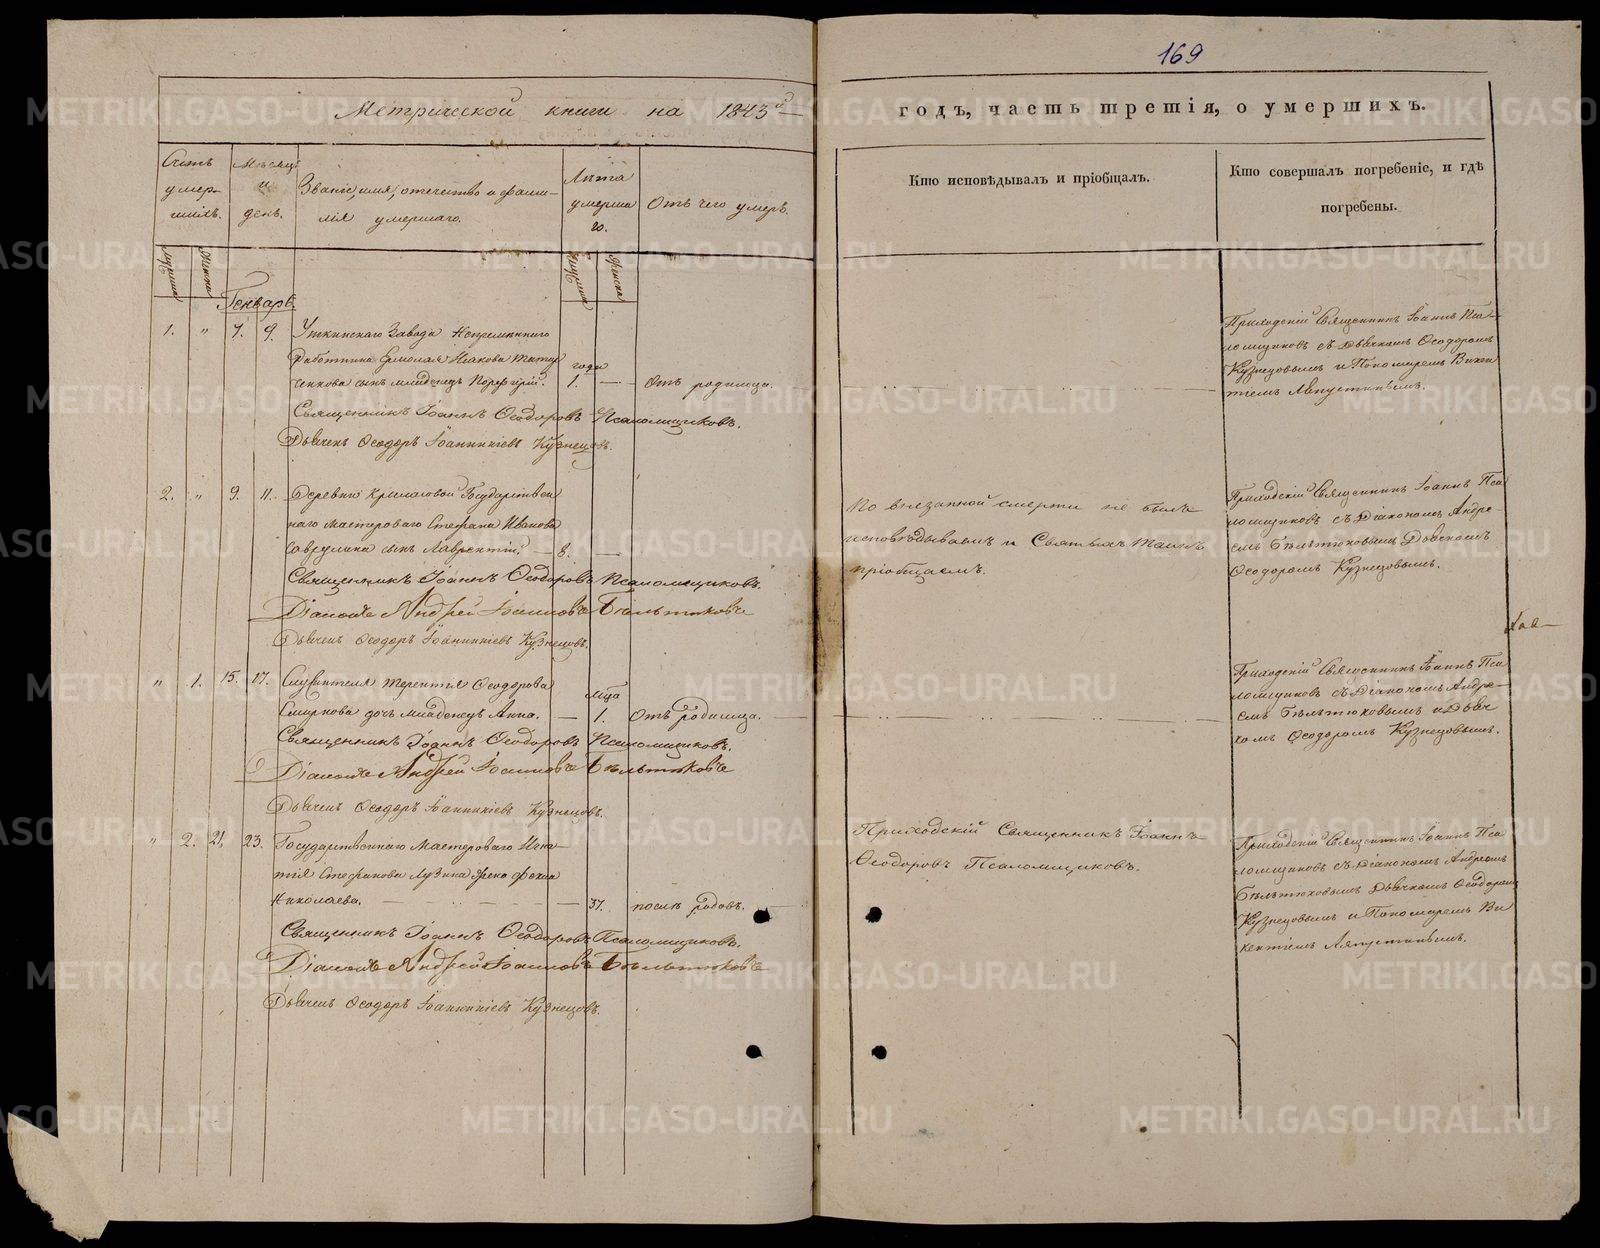 169
Метрической книги на 1843й
годъ, часть третія, о умершихъ.
Счетъ умершихъ.
Мѣсяцъ и день.
Званіе, имя, отечество и фамилія умершаго.
Лѣта умершаго.
Отъ чего умеръ.
Кто исповѣдывалъ и пріобщалъ.
Кто совершалъ погребеніе, и гдѣ
погребены.
Генварь.
1. " 7. 9. Уткинскаго Завода Непремѣннаго
работника Ермолая Исакова
сынъ младенецъ Порфирій. года 1. — отъ родимца.
Священникъ Іоаннъ Ѳеодоровъ Псаломщиковъ.
Дьячекъ Ѳеодоръ Іоанникіевъ Кузнецовъ.
Приходскій Священникъ Іоаннъ Пса-
ломщиковъ съ Дьячкомъ Ѳеодоромъ
Кузнецовымъ и Пономаремъ Викен
тіемъ Ляпустинымъ.
2. " 9. 11. Деревни Крылосовой Государствен
наго мастероваго Стефана Иванова
сынъ Лаврентій. — 8. —
Священникъ Іоаннъ Ѳеодоровъ Псаломщиковъ.
Діаконъ Андрей Іоанновъ Бѣльтюковъ
Дьячекъ Ѳеодоръ Іоанникіевъ Кузнецовъ.
По внезапной смерти не былъ
исповѣдываемъ и Святыхъ Таинъ
пріобщаемъ.
Приходскій Священникъ Іоаннъ Пса
ломщиковъ съ Діакономъ Андре-
емъ Бѣльтюковымъ Дьячкомъ
Ѳеодоромъ Кузнецовымъ.
" 1. 15. 17. Служителя Терентія Ѳеодорова
Смирнова дочь младенецъ Анна. — мца 1. отъ родимца.
Священникъ Іоаннъ Ѳеодоровъ Псаломщиковъ.
Діаконъ Андрей Іоанновъ Бѣльтюковъ
Дьячекъ Ѳеодоръ Іоанникіевъ Кузнецовъ.
Приходскій Священникъ Іоаннъ Пса
ломщиковъ съ Діакономъ Андре-
емъ Бѣльтюковымъ и Дьяч
комъ Ѳеодоромъ Кузнецовымъ.
" 2. 21. 23. Государственнаго Мастероваго Игна-
тія Стефанова Лузина жена
Николаева. — 37. послѣ родовъ.
Священникъ Іоаннъ Ѳеодоровъ Псаломщиковъ.
Діаконъ Андрей Іоанновъ Бѣльтюковъ
Дьячекъ Ѳеодоръ Іоанникіевъ Кузнецовъ.
Приходскій Священникъ Іоаннъ
Ѳеодоровъ Псаломщиковъ.
Приходскій Священникъ Іоаннъ Пса
ломщиковъ съ Діакономъ Андреемъ
Бѣльтюковымъ Дьячкомъ Ѳеодоромъ
Кузнецовымъ и Пономаремъ Ви
кентіемъ Ляпустинымъ.
METRIKI.GASO-URAL.RU